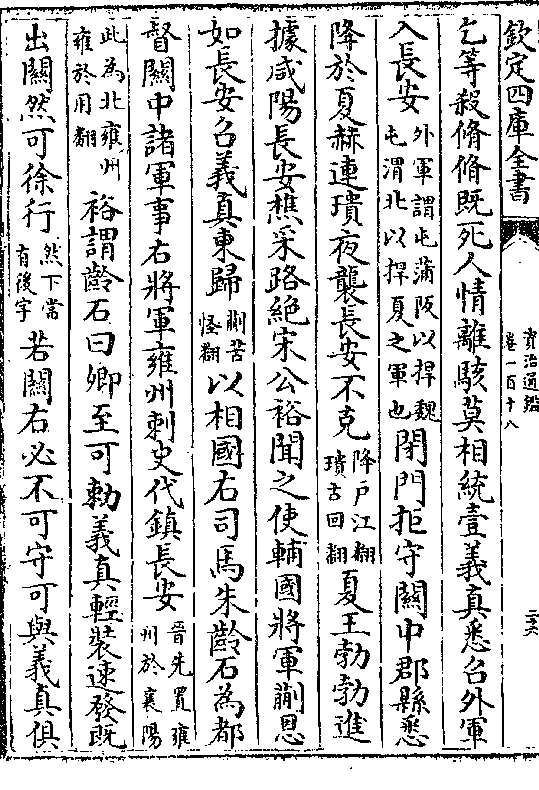 欽定四庫全書
資治通鑑
卷一百十八
二六
乞等殺脩脩既死人情離駭莫相統壹義真悉召外軍
入長安外軍謂屯蒲阪以捍魏屯渭北以捍夏之軍也閉門拒守關中郡縣悉
降於夏赫連璝夜襲長安不克降戸江翻璝古回翻夏王勃勃進
據咸陽長安樵采路絶宋公裕聞之使輔國將軍蒯恩
如長安召義真東歸蒯苦怪翻以相國右司馬朱齡石為都
督關中諸軍事右將軍雍州刺史代鎮長安晉先置雍州於襄陽
此為北雍州雍於用翻裕謂齡石曰卿至可勅義真輕裝速發既
出關然可徐行然下當有後字若關右必不可守可與義真俱